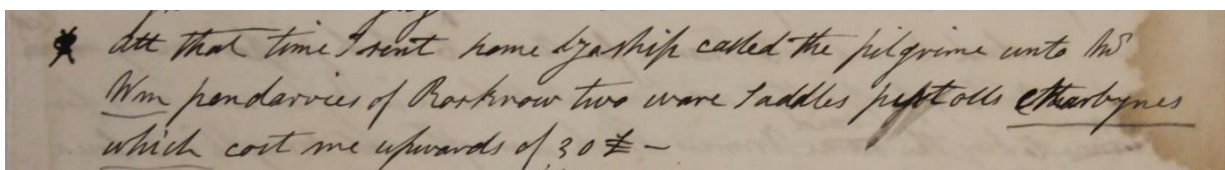 * att that time I sent home by a ship called the pilgrime unto Mr
Wm pendarvies of Rosknow two ware Saddles pistolls & karbynes
which cost me upwards of 30 £ –